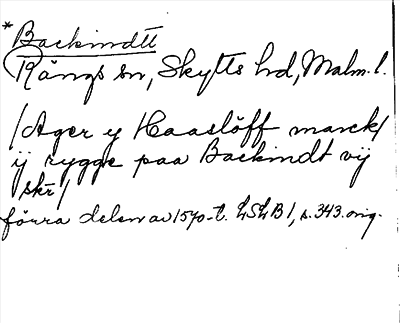 * Backindtt
Rängs sn, Skytts hd, Malm. l.
/Ager y Haaslöff marck/
ij rygge paa Backindt vij
skr/
förra delen av 1570-t. LSLB1, s. 343. orig.